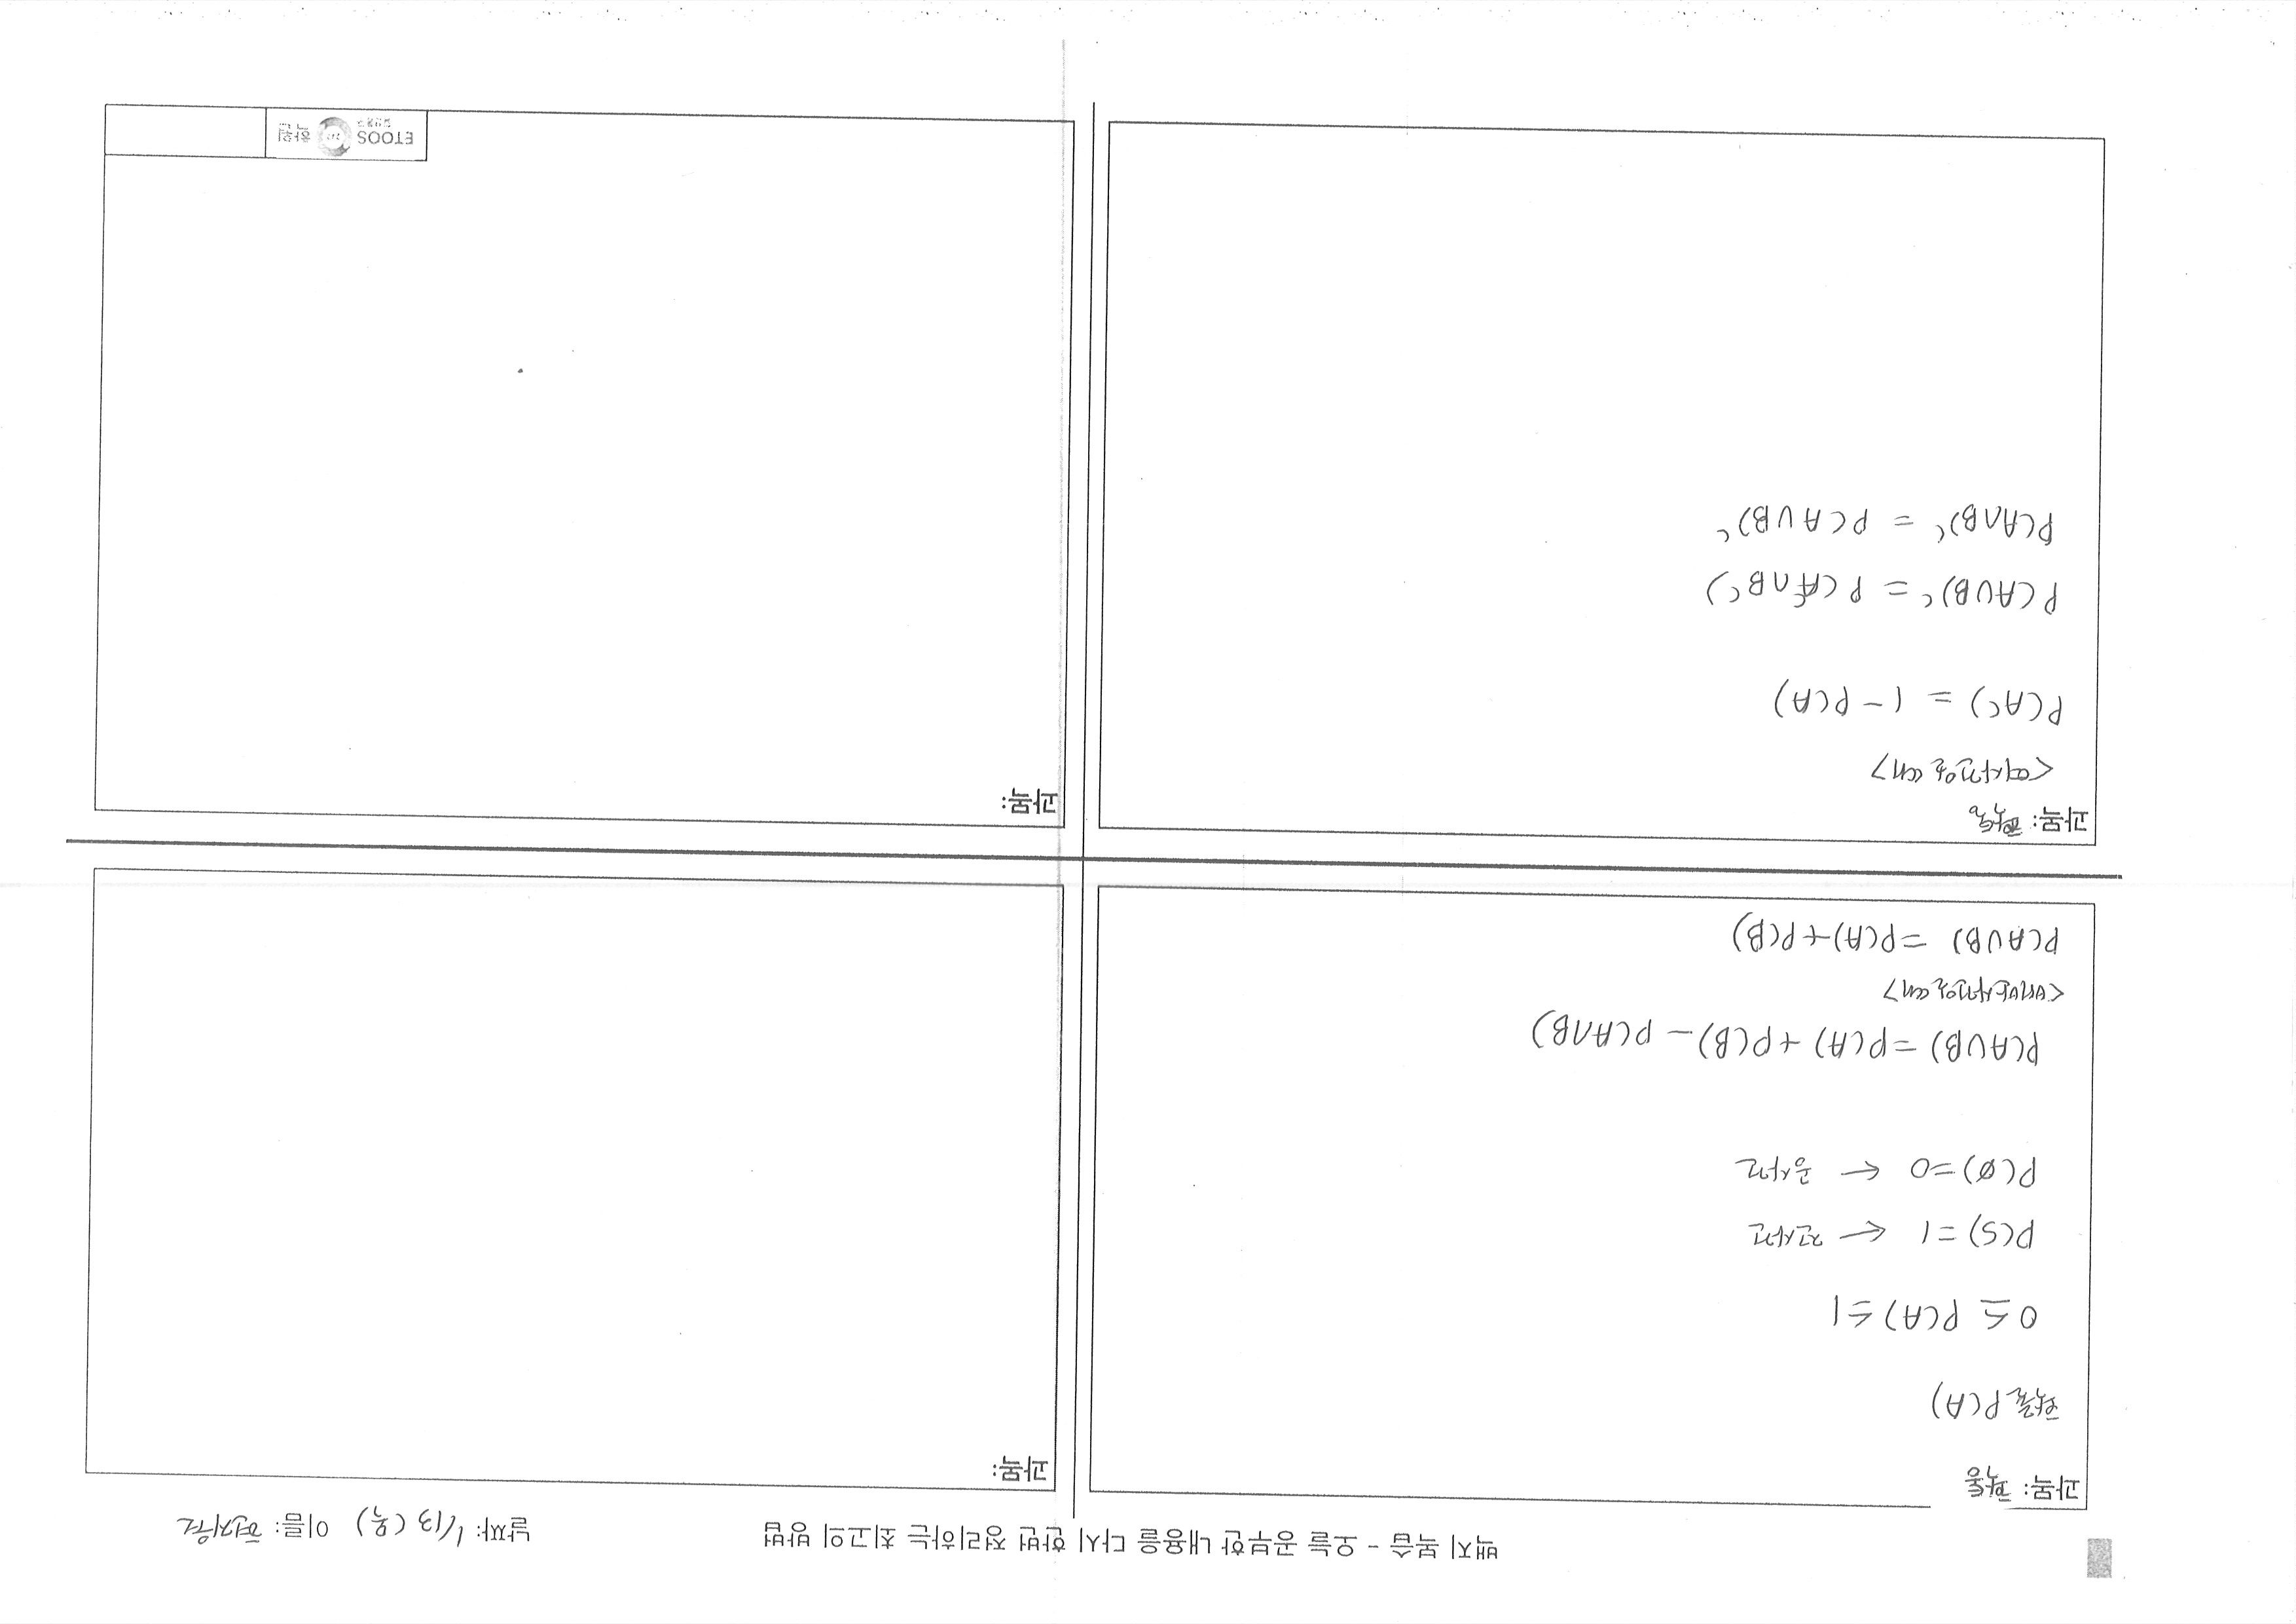 백지 복습 - 오늘 학습한 내용을 다시 한번 정리하는 최고의 방법
날짜: 1/13 (목) 이름:
과목: 확률
확률 P(A)
0 ≤ P(A) ≤ 1
P(S) = 1 ← 전사건
P(∅) = 0 ← 공사건
P(A∪B) = P(A) + P(B) - P(A∩B)
<배반사건일 때>
P(A∪B) = P(A) + P(B)
과목:
과목: 확통
<여사건일 때>
P(Aᶜ) = 1 - P(A)
P(A∪B)ᶜ = P(Aᶜ∩Bᶜ)
P(A∩B)ᶜ = P(A∪B)ᶜ
과목:
ETOOS